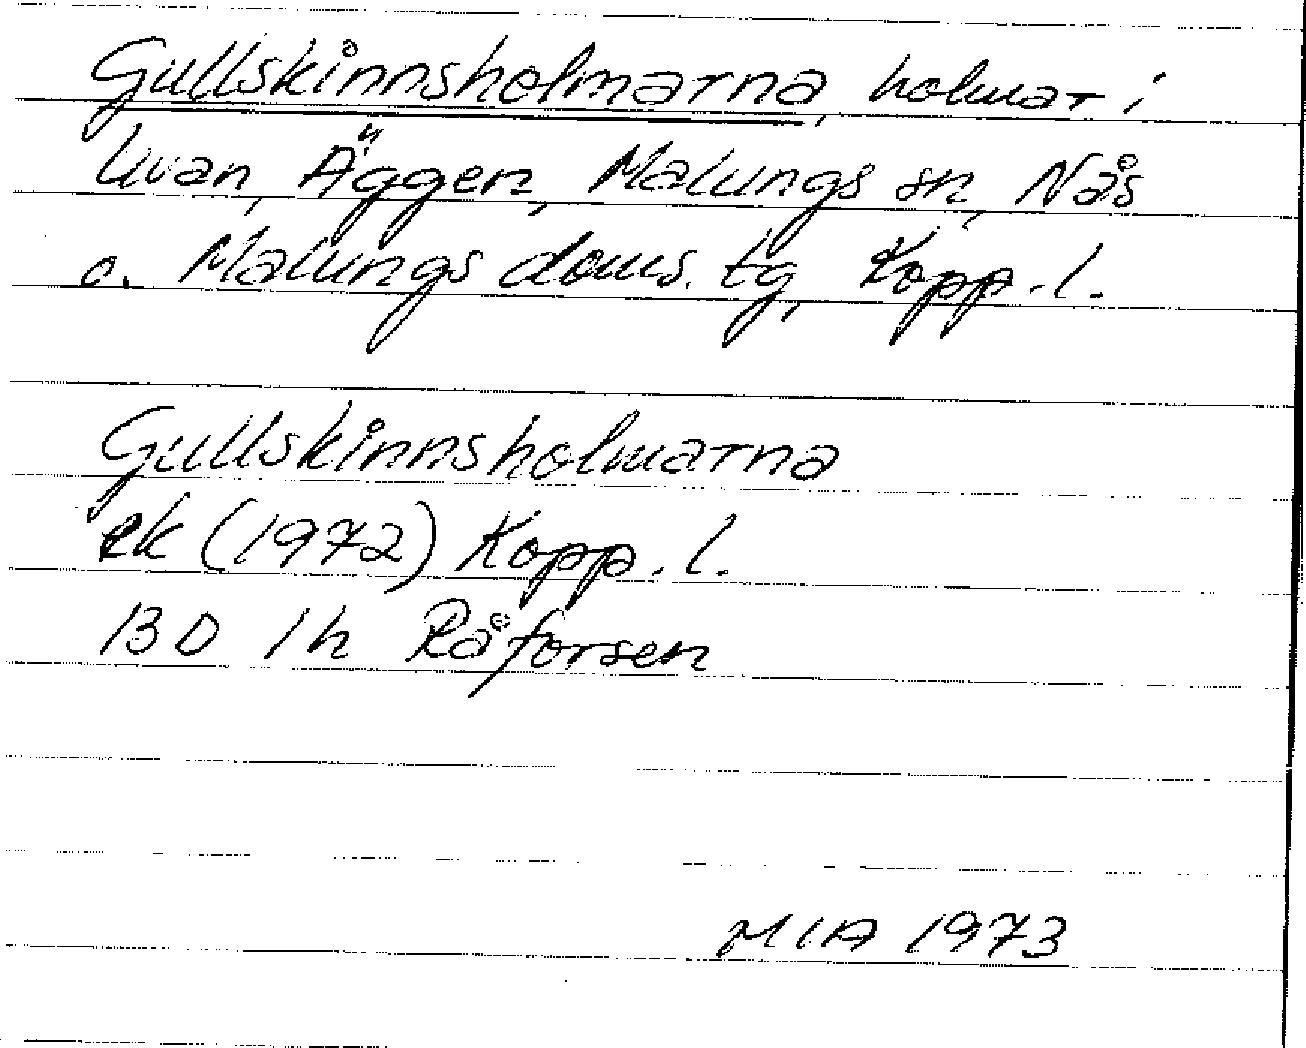 Gullskinnsholmarna, holmar i
Uvan, Äggen, Malungs sn, Nås
o. Malungs doms. tg, Kopp. l.
Gullskinnsholmarna
ek (1972) Kopp. l.
13 D 1h Råforsen
MIA 1973